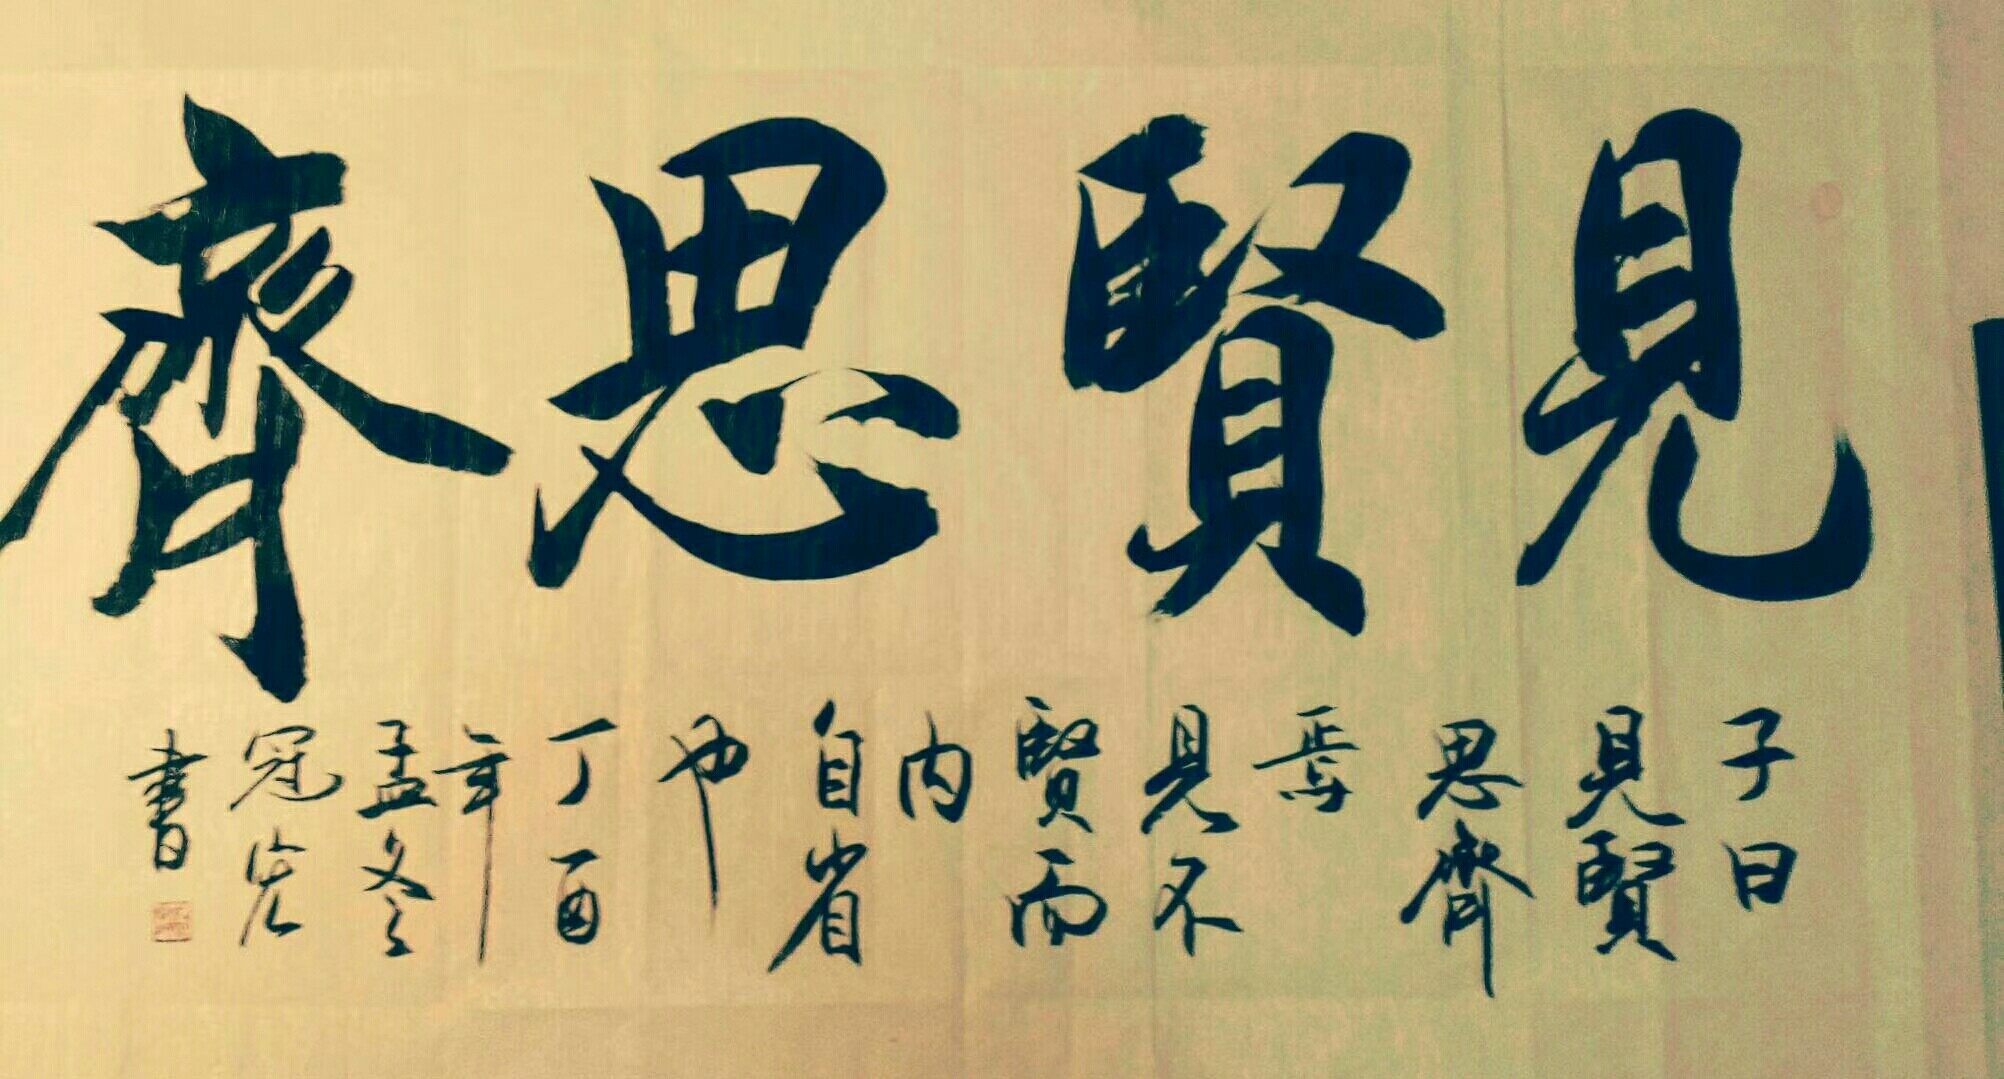 見賢思齊
子曰
見賢
思齊
焉
見不
賢而
内
自省
也
丁酉
年
孟冬
冠
書